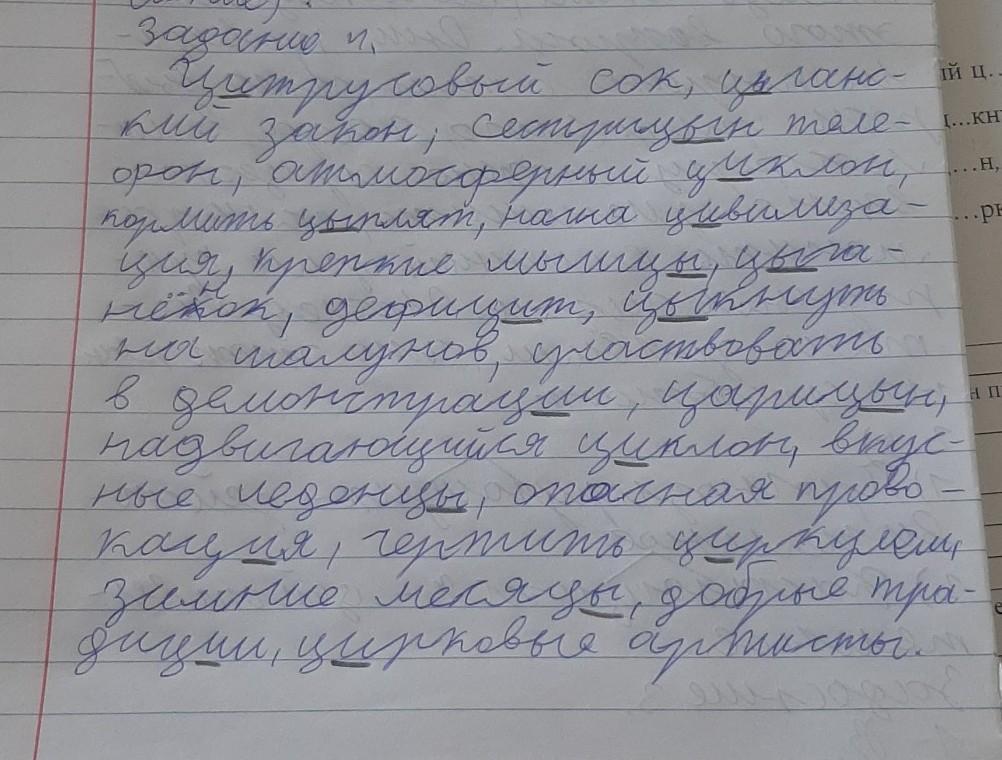 Задание 4.
Цитрусовый сок, цыганс-
кий закон, сестрицын теле-
фон, атмосферный циклон,
кормить цыплят, наша цивилиза-
ция, крепкие мышцы, цыга-
нёнок, дефицит, цыкнуть
на шалунов, участвовать
в демонстрации, царицын,
надвигающийся циклон, вкус-
ные леденцы, опасная прово-
кация, чертить циркулем,
зимние месяцы, добрые тра-
диции, цирковые артисты.
ый ц...
н,